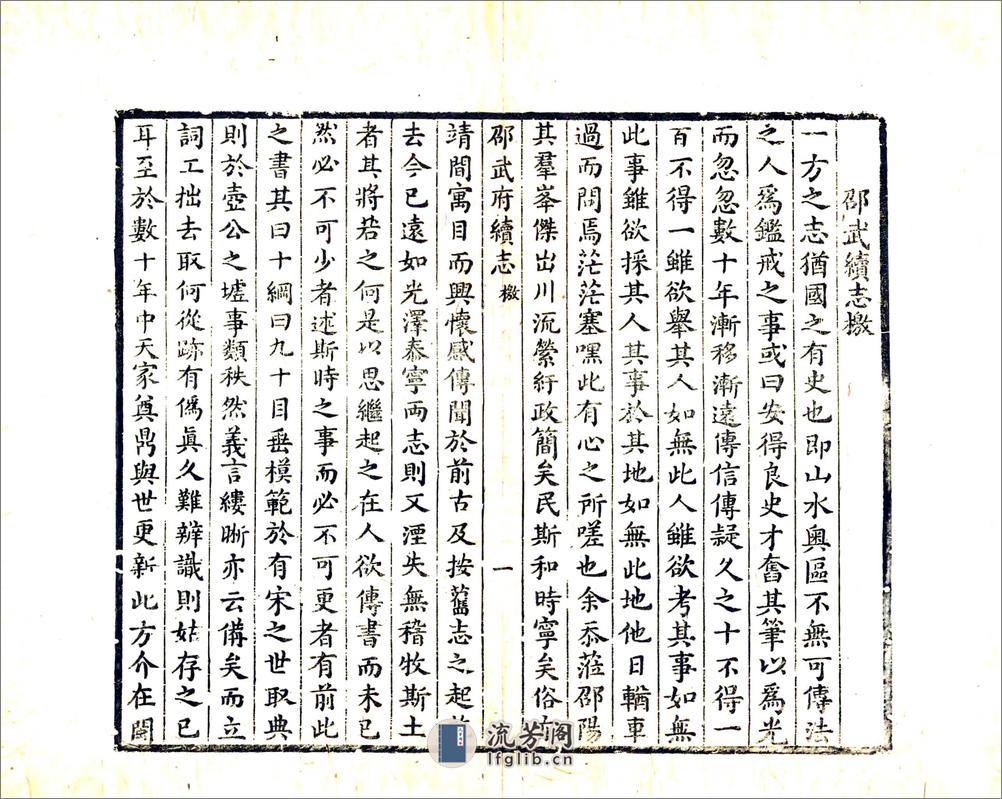 邵武續志檄
一方之志猶國之有史也即山水奥區不無可傳法
之人爲鑑戒之事或曰安得良史才奮其筆以爲光
而忽忽數十年漸移漸遠傳信傳疑久之十不得一
百不得一雖欲舉其人如無此人雖欲考其事如無
此事雖欲採其人其事於其地如無此地他日輶車
過而問焉茫茫塞嘿此有心之所嗟也余忝蒞邵陽
其羣峯傑出川流縈紆政簡矣民斯和時寧矣俗
邵武府續志 檄 一
靖間寓目而興懷感傳聞於前古及按舊志之起
去今已遠如光澤泰寧兩志則又湮失無稽牧斯土
者其將若之何是以思繼起之在人欲傳書而未已
然必不可少者述斯時之事而必不可更者有前此
之書其曰十綱曰九十目垂模範於有宋之世取典
則於壺公之墟事類秩然義言縷晰亦云備矣而立
詞工拙去取何從跡有僞眞久難辨識則姑存之已
耳至於數十年中天家奠鼎與世更新此方介在閩
流芳阁
lfglib.cn